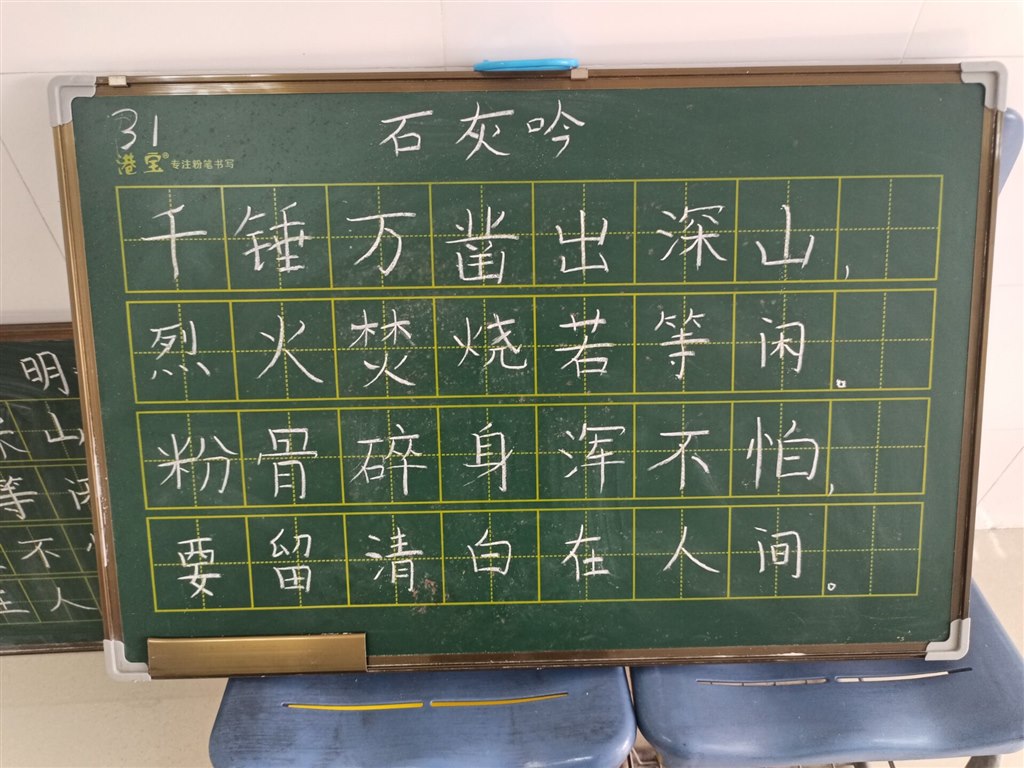 31 石灰吟
港宝® 专注粉笔书写
千锤万凿出深山，
烈火焚烧若等闲。
粉骨碎身浑不怕，
要留清白在人间。
明
山
等闲
不
人